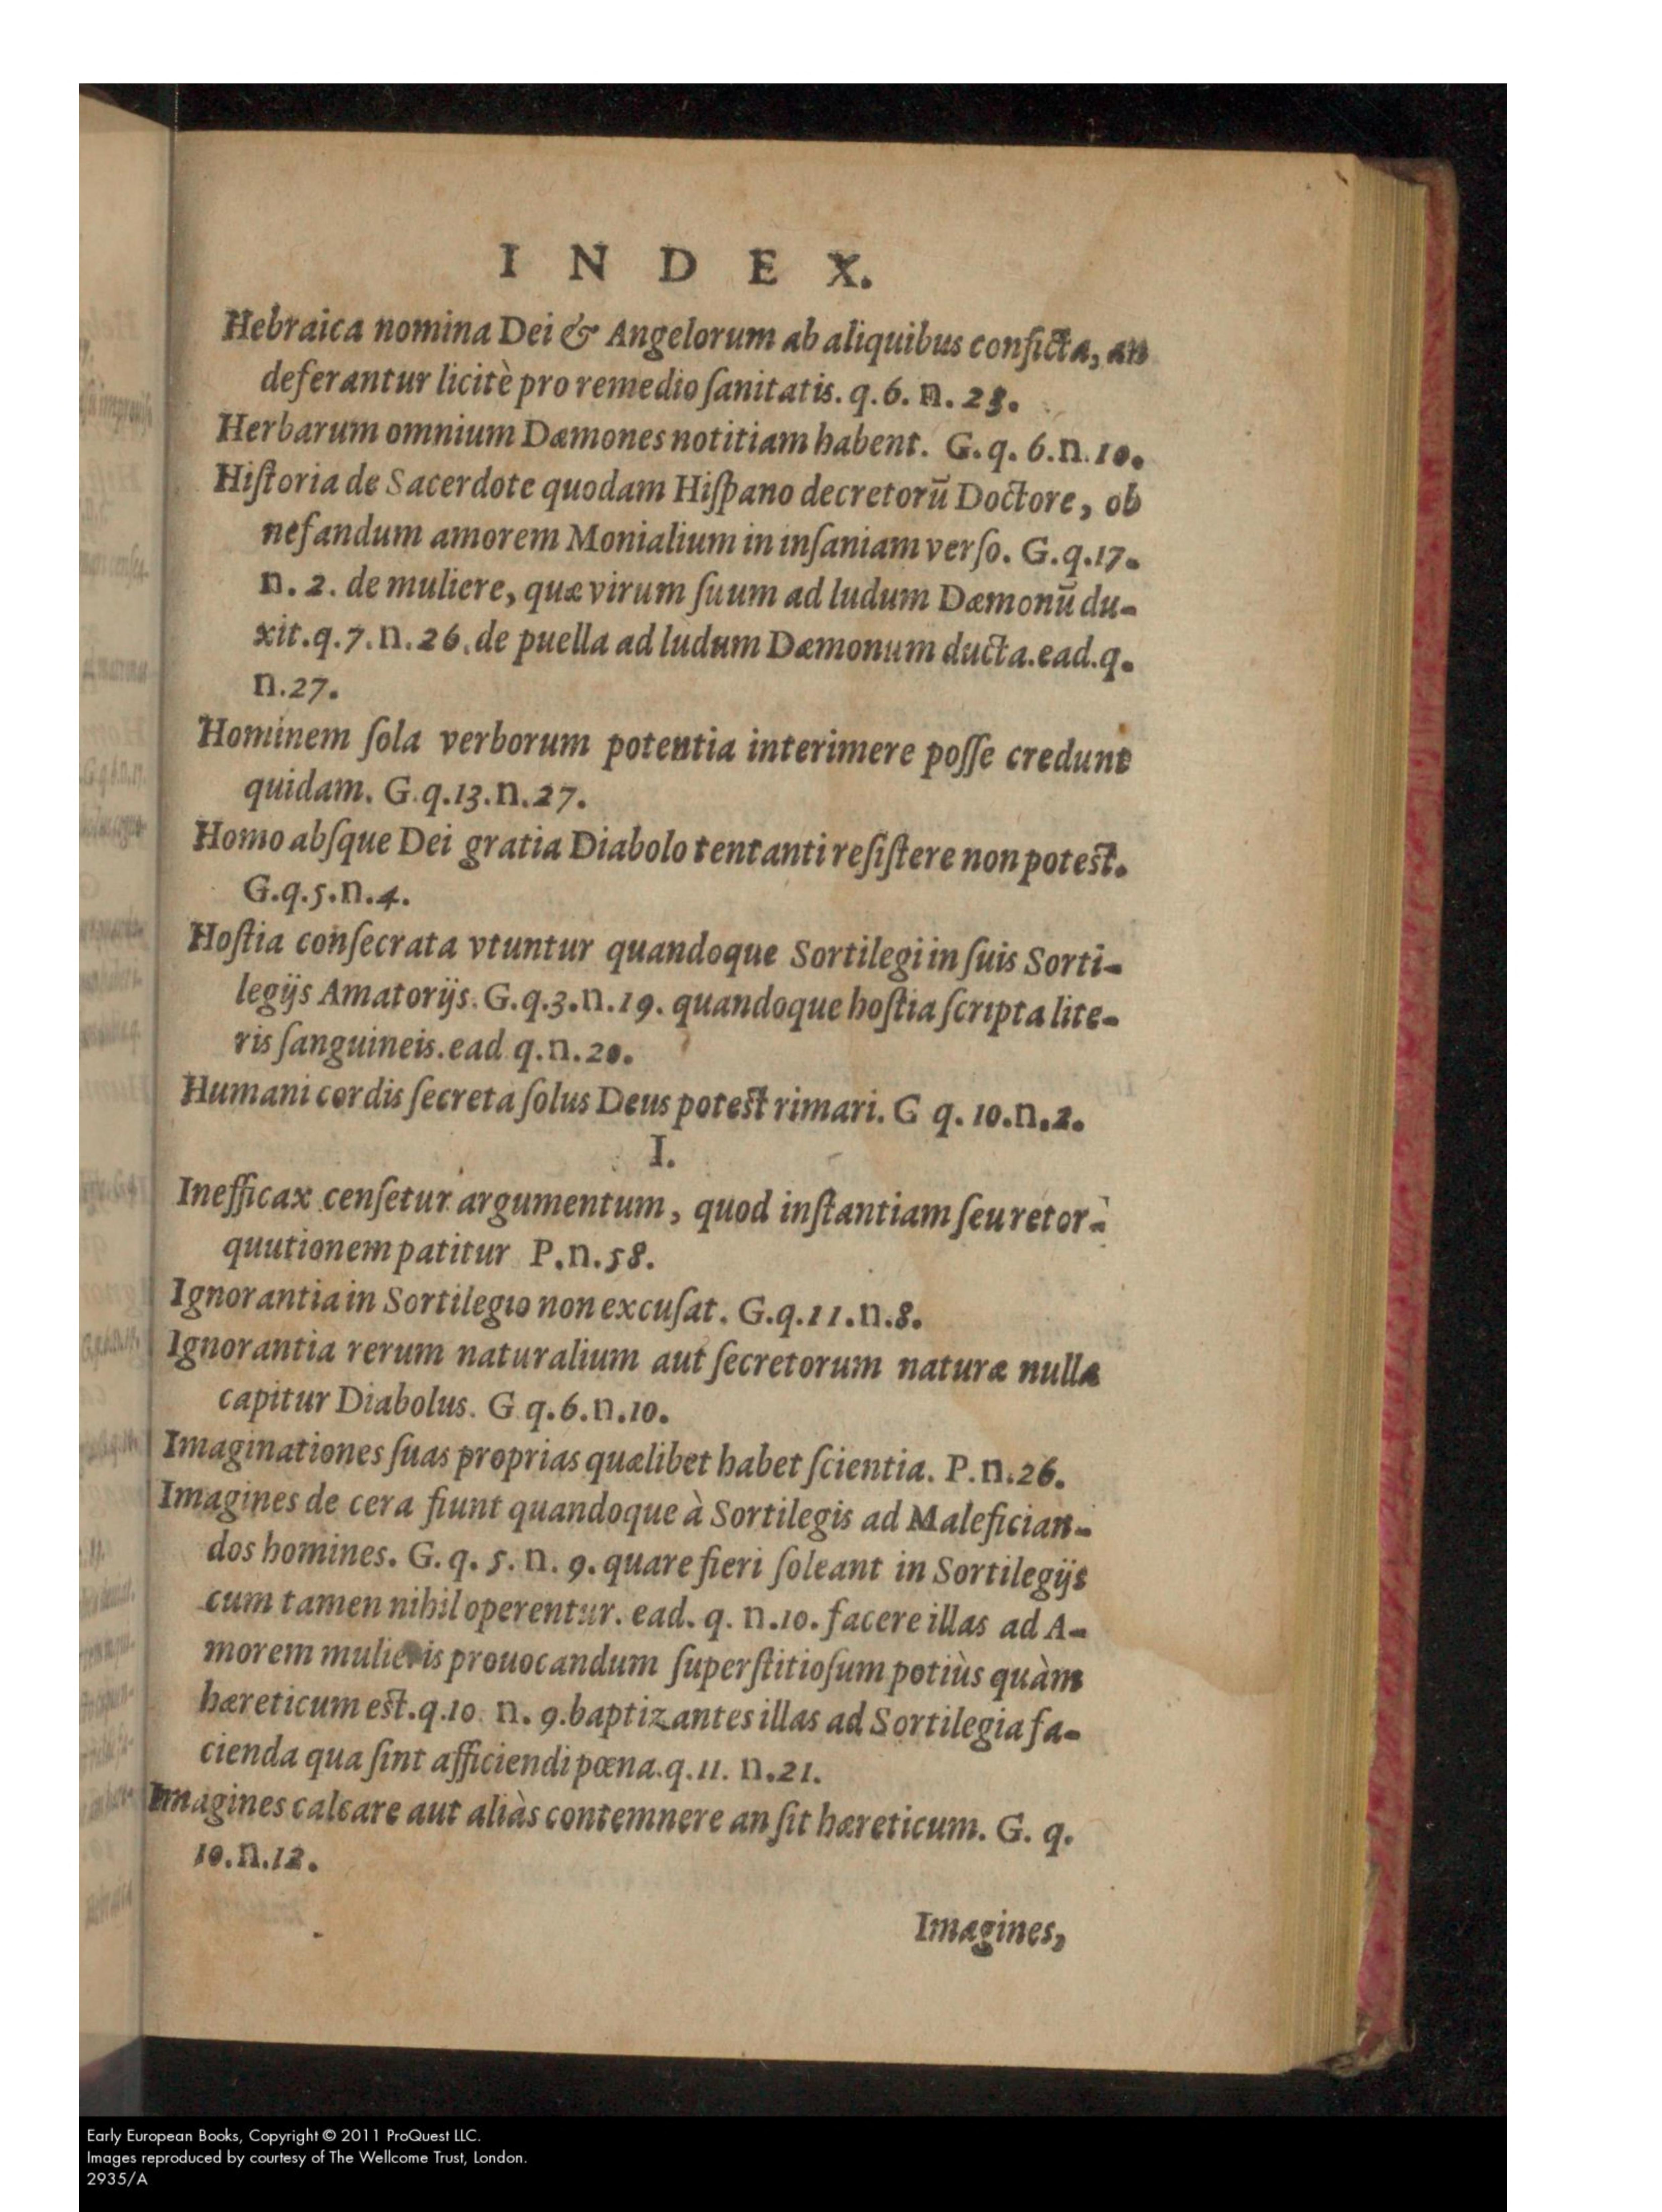 I N D E X.
Hebraica nomina Dei & Angelorum ab aliquibus conficta, an
deferantur licitè pro remedio ſanitatis. q. 6. n. 28.
Herbarum omnium Dæmones notitiam habent. G. q. 6. n. 10.
Hiſtoria de Sacerdote quodam Hiſpano decretorū Doctore, ob
nefandum amorem Monialium in inſaniam verſo. G. q. 17.
n. 2. de muliere, quæ virum ſuum ad ludum Dæmonū du-
xit. q. 7. n. 26. de puella ad ludum Dæmonum ducta. ead. q.
n. 27.
Hominem ſola verborum potentia interimere poſſe credunt
quidam. G. q. 13. n. 27.
Homo abſque Dei gratia Diabolo tentanti reſiſtere non poteſt.
G. q. 5. n. 4.
Hoſtia conſecrata vtuntur quandoque Sortilegi in ſuis Sorti-
legijs Amatorijs. G. q. 3. n. 19. quandoque hoſtia ſcripta lite-
ris ſanguineis. ead q. n. 20.
Humani cordis ſecreta ſolus Deus poteſt rimari. G q. 10. n. 2.
I.
Inefficax cenſetur argumentum, quod inſtantiam ſeu retor-
quutionem patitur P. n. 58.
Ignorantia in Sortilegio non excuſat. G. q. 11. n. 8.
Ignorantia rerum naturalium aut ſecretorum naturæ nulla
capitur Diabolus. G q. 6. n. 10.
Imaginationes ſuas proprias quælibet habet ſcientia. P. n. 26.
Imagines de cera fiunt quandoque à Sortilegis ad Malefician-
dos homines. G. q. 5. n. 9. quare fieri ſoleant in Sortilegijs
cum tamen nihil operentur. ead. q. n. 10. facere illas ad A-
morem mulieris prouocandum ſuperſtitioſum potiùs quàm
hæreticum eſt. q. 10. n. 9. baptizantes illas ad Sortilegia fa-
cienda qua ſint afficiendi pœna. q. 11. n. 21.
Imagines calcare aut aliàs contemnere an ſit hæreticum. G. q.
10. n. 12.
Imagines,
Early European Books, Copyright © 2011 ProQuest LLC.
Images reproduced by courtesy of The Wellcome Trust, London.
2935/A